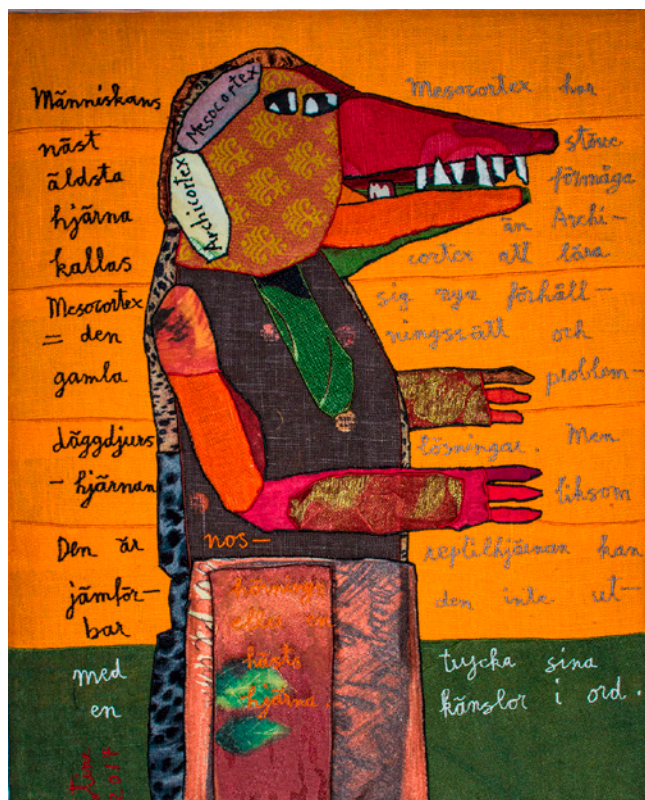 Människans
näst
äldsta
hjärna
kallas
Mesocortex
= den
gamla
däggdjurs
-hjärnan
Den är
jämför-
bar
med
en
nos-
hörnings
eller en
hästs
hjärna.
Mesocortex
Archicortex
Mesocortex har
större
förmåga
än Archi-
cortex att lära
sig nya förhåll-
ningssätt och
problem-
lösningar. Men
liksom
reptilhjärnan kan
den inte ut-
trycka sina
känslor i ord.